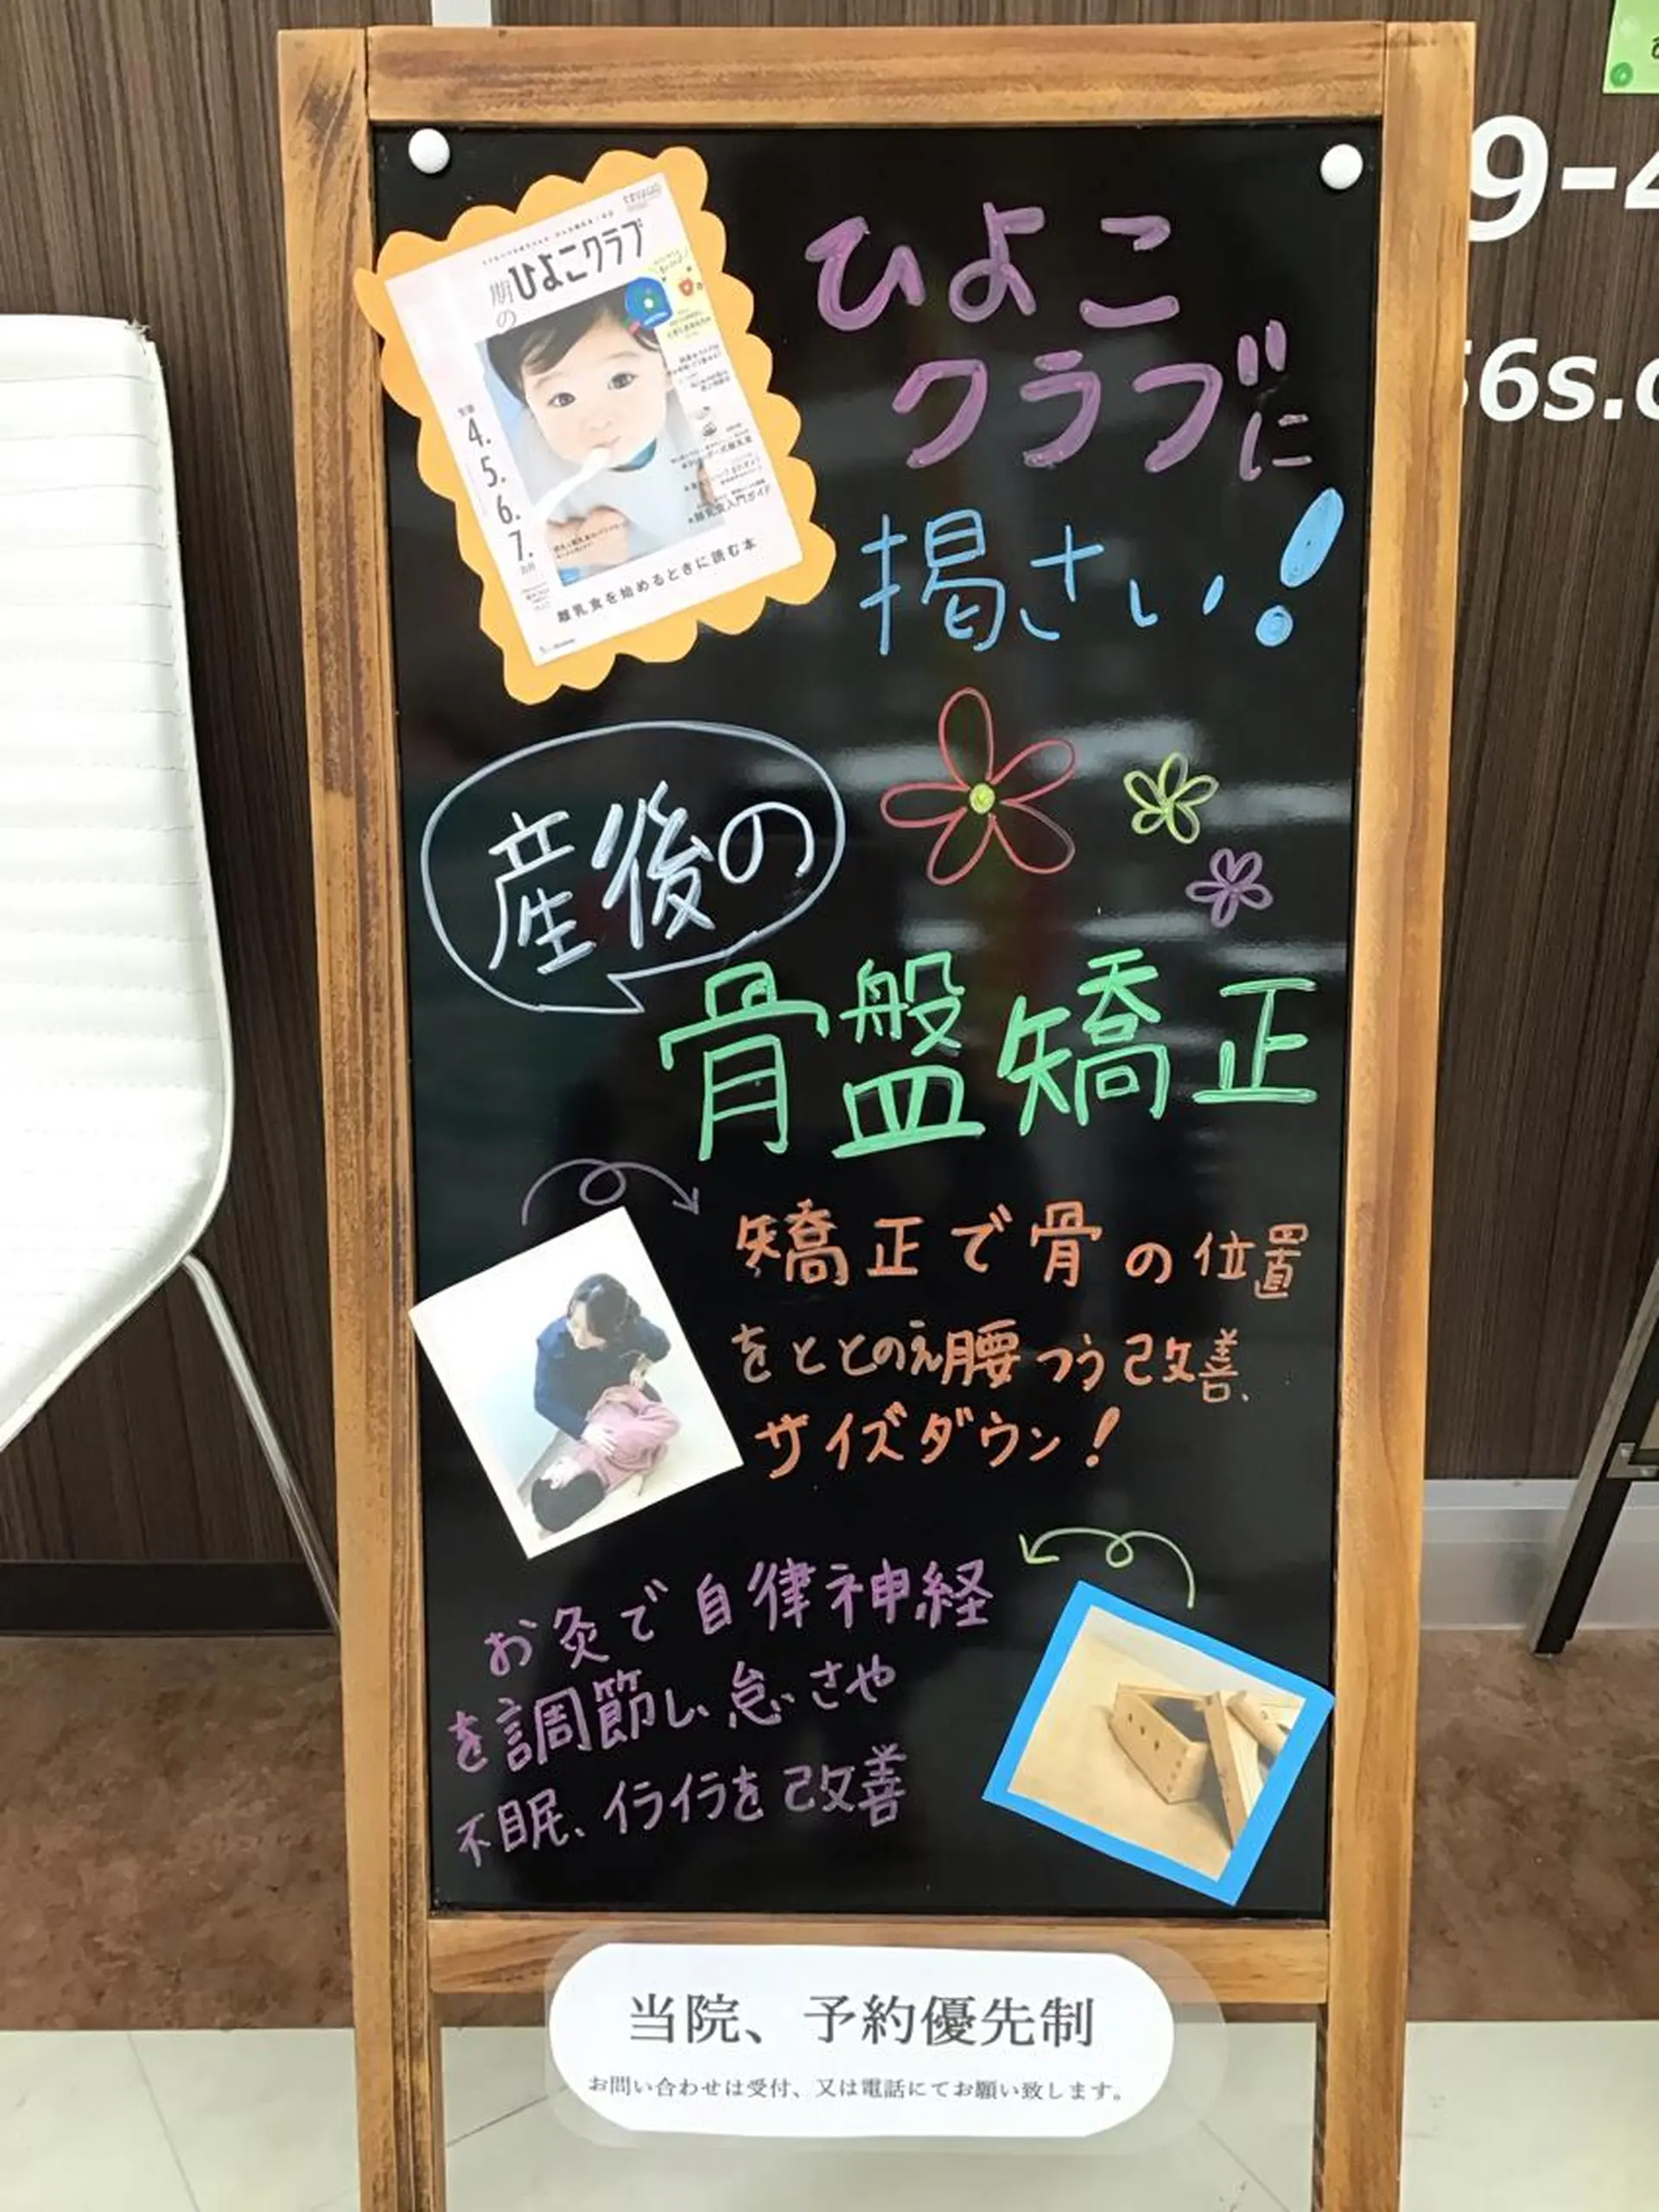 期の
ひよこクラブ
4.
5.
6.
7.
離乳食入門ガイド
離乳食を始めるときに読む本
ひよこ
クラブに
掲さい!
産後の
骨盤矯正
矯正で骨の位置
をととのえ腰つう改善、
サイズダウン!
お灸で自律神経
を調節し、怠さや
不眠、イライラを改善
当院、予約優先制
お問い合わせは受付、又は電話にてお願い致します。
9-4
56s.c